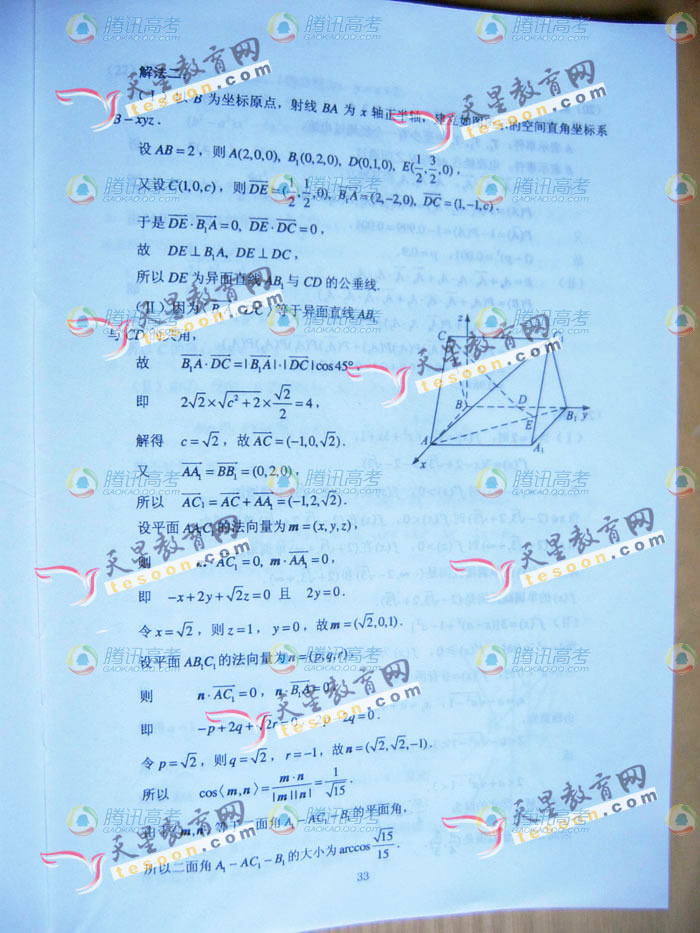 解法二：
B 为坐标原点，射线 BA 为 x 轴正半轴，建立如图所示的空间直角坐标系
B－xyz．
设 AB=2，则 A(2,0,0)，B₁(0,2,0)，D(0,1,0)，E(1/2,3/2,0)，
又设 C(1,0,c)，则 DE=(1/2,1/2,0)，B₁A=(2,-2,0)，DC=(1,-1,c)．
于是 DE·B₁A=0，DE·DC=0，
故 DE⊥B₁A，DE⊥DC，
所以 DE 为异面直线 AB₁ 与 CD 的公垂线．
（Ⅱ）因为⟨B₁A,DC⟩等于异面直线 AB₁
与 CD 的夹角，
故 B₁A·DC=|B₁A|·|DC|cos45°，
即 2√2×√(c²+2)×√2/2=4，
解得 c=√2，故 AC=(-1,0,√2)．
又 AA₁=BB₁=(0,2,0)，
所以 AC₁=AC+AA₁=(-1,2,√2)．
设平面 AA₁C₁ 的法向量为 m=(x,y,z)，
则 m·AC₁=0，m·AA₁=0，
即 -x+2y+√2z=0 且 2y=0．
令 x=√2，则 z=1，y=0，故 m=(√2,0,1)．
设平面 AB₁C₁ 的法向量为 n=(p,q,r)，
则 n·AC₁=0，n·B₁A=0，
即 -p+2q+√2r=0，2p-2q=0．
令 p=√2，则 q=√2，r=-1，故 n=(√2,√2,-1)．
所以 cos⟨m,n⟩=m·n/|m||n|=1/√15．
⟨m,n⟩等于二面角 A₁－AC₁－B₁ 的平面角，
所以二面角 A₁－AC₁－B₁ 的大小为 arccos √15/15．
z
C
C₁
B
D
E
B₁
y
A
A₁
x
33
腾讯高考
GAOKAO.QQ.COM
天星教育网
tesoon.com